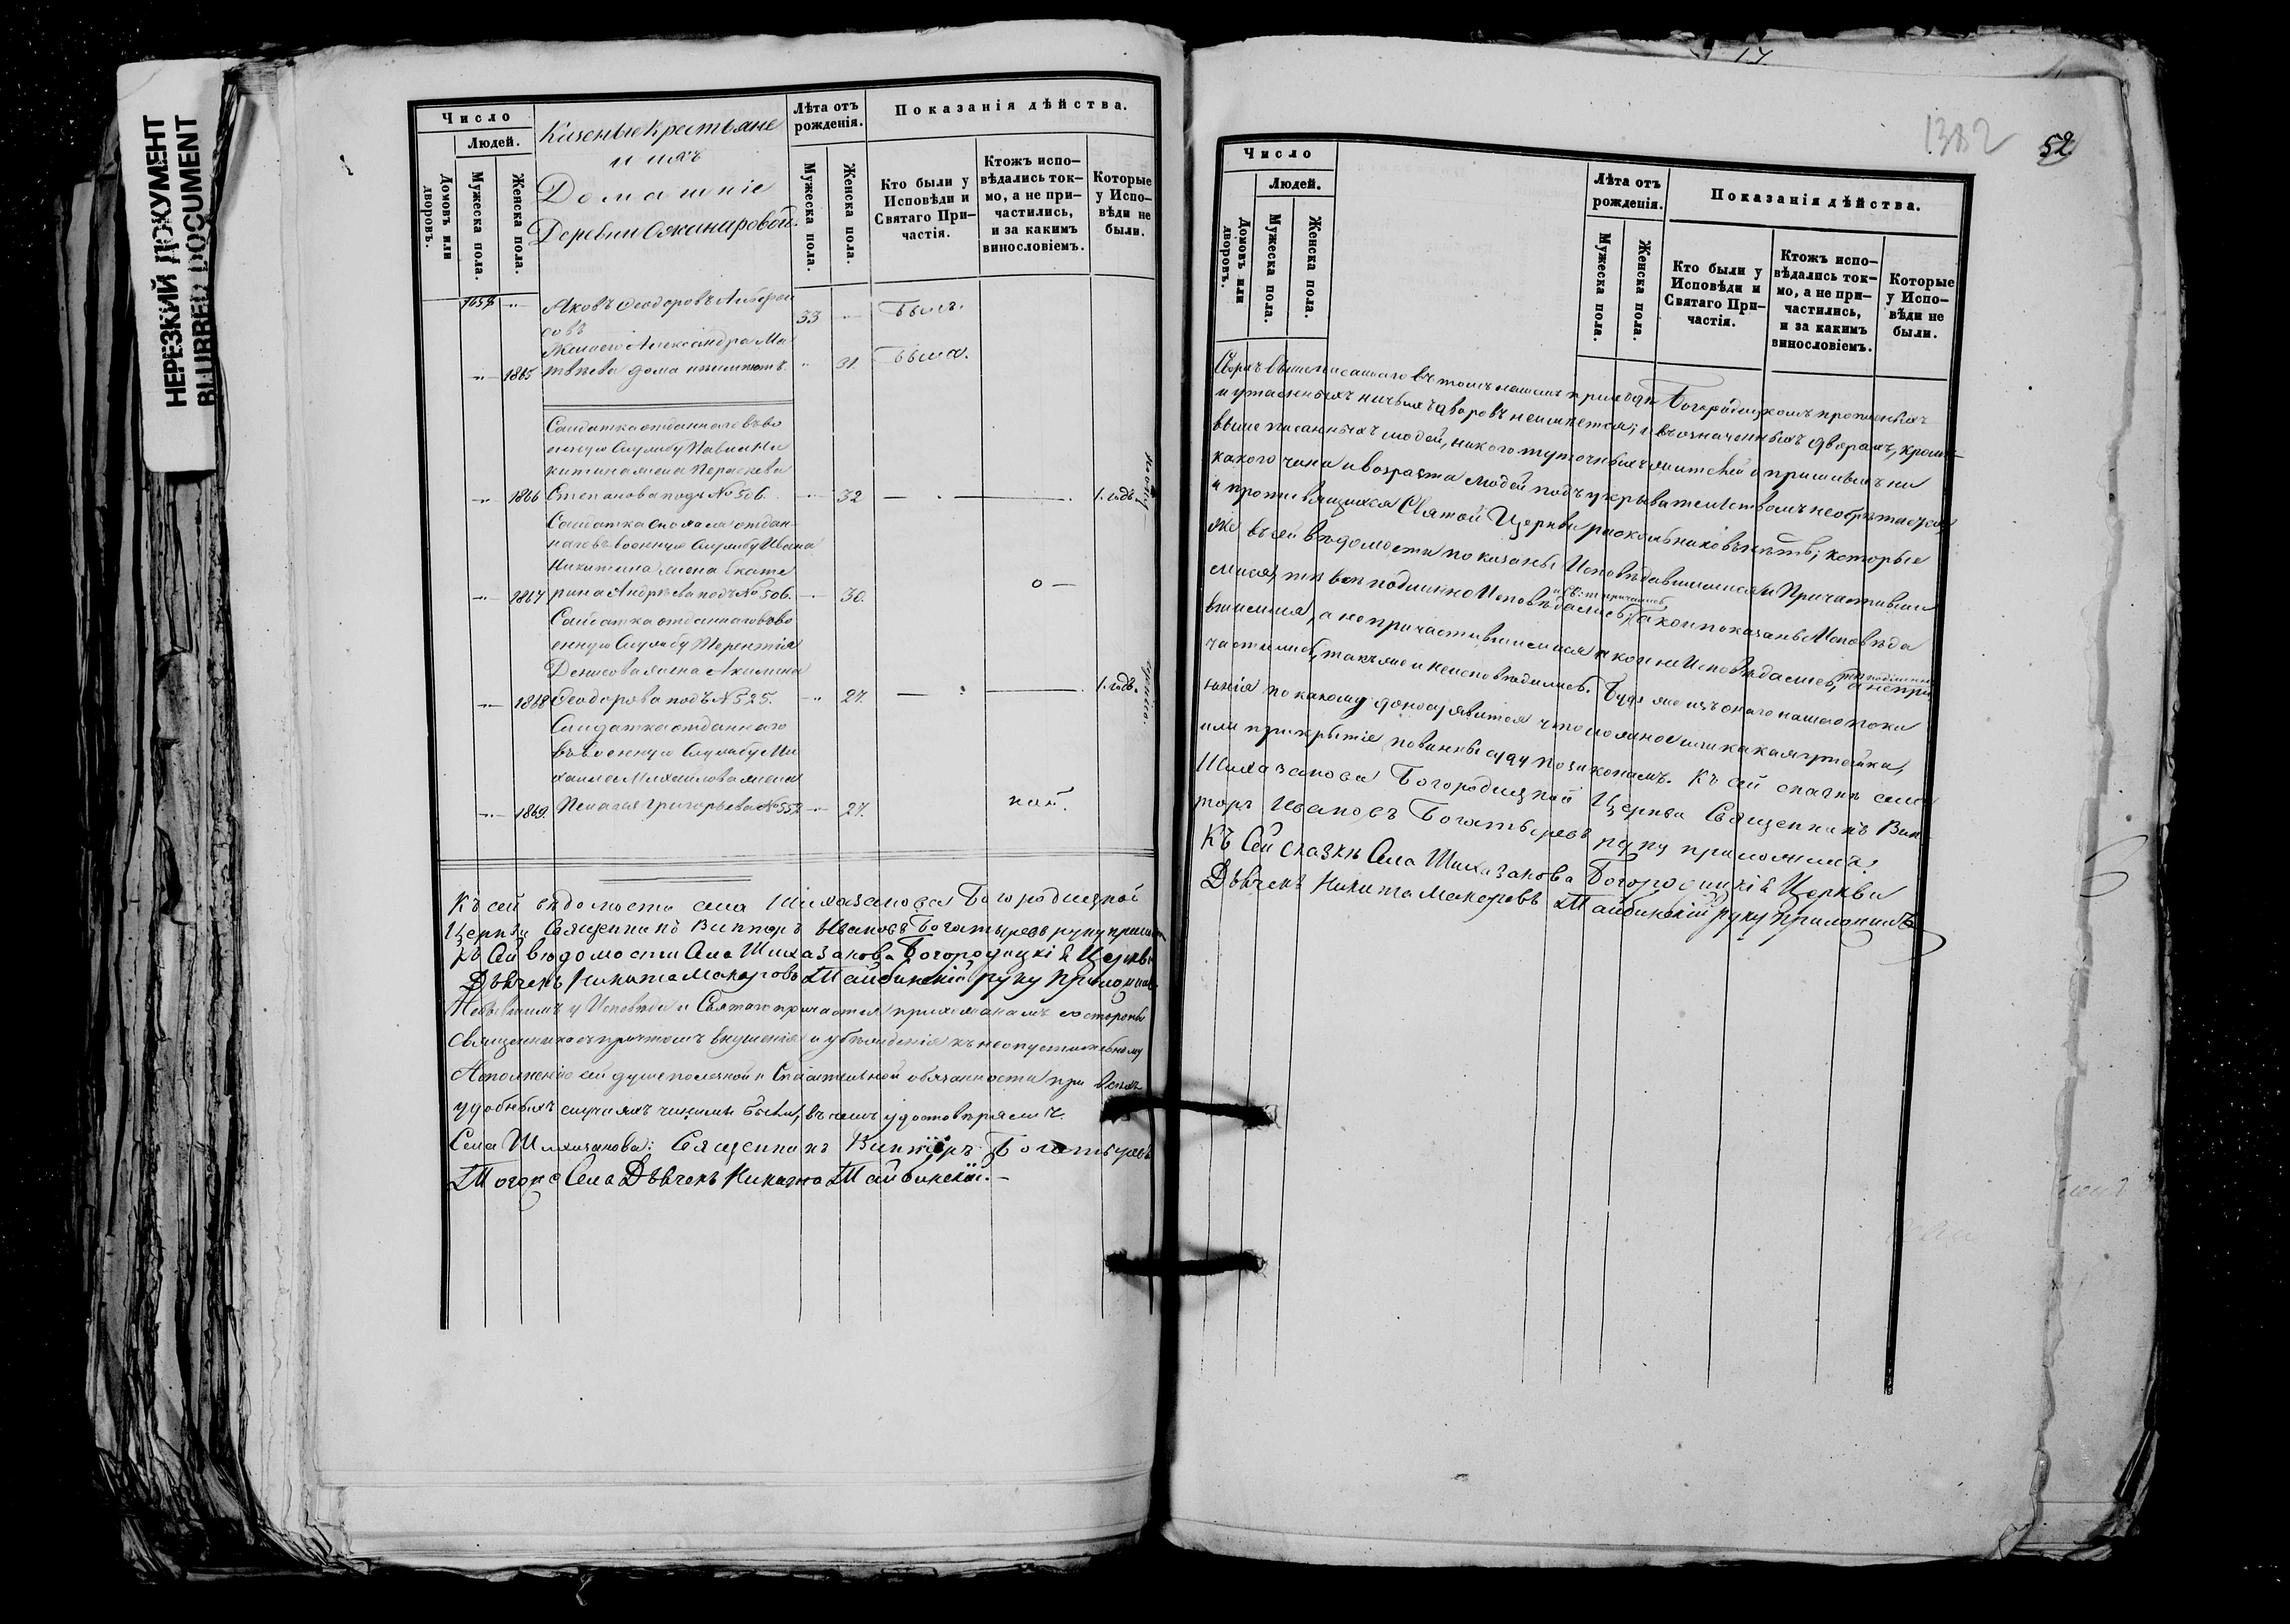 НЕРЕЗКИЙ ДОКУМЕНТ
BLURRED DOCUMENT
Число
Людей.
Домовъ или дворовъ.
Мужеска пола.
Женска пола.
Казеные Крестьяне
и ихъ
Домашніе
Деревни
Лѣта отъ рожденія.
Мужеска пола.
Женска пола.
Показанія дѣйства.
Кто были у Исповѣди и Святаго При-частія.
Ктожъ испо-вѣдались ток-мо, а не при-частились, и за какимъ винословіемъ.
Которые у Испо-вѣди не были.
Яковъ Ѳеодоровъ
33 Былъ.
Жена его Александра Ма
1865 твѣева дома 31. Была.
Салдатка отданнаго въ во
енную Службу Павла Ни
китина жена Параскева
1866 Степанова подъ № 506. 32 1. годъ
Салдатка отдан-
наго въ военную Службу Ивана
Никитина жена Екате
1867 рина Андрѣева подъ № 506. 30.
Салдатка отданнаго въ во
енную Службу Терентія
Денисова жена Акилина
1868 Ѳеодорова подъ № 525. 27. 1. годъ
Салдатка отданнаго
въ военную Службу Ми
хаила Михайлова жена
1869. Пелагія Григорьева № 27.
Къ сей вѣдомости села Шихазанова Богородицкой
Церкви Священникъ Викторъ Ивановъ Богатыревъ руку
Къ Сей вѣдомости Села Шихазанова Богородицкія Церкви
Дьячекъ Никита Макаровъ Тайбинскій руку приложилъ.
Небывшимъ у Исповѣди и Святаго причастія прихожанамъ со стороны
Священника съ причтомъ внушенія и убѣжденія къ неопустительному
Исполненію сей душеполезной и Спасительной обязанности при всѣхъ
удобныхъ случаяхъ чинимы были, въ чемъ удостовѣряемъ.
Села Шихазанова: Священникъ Викторъ Богатыревъ
Того же Села Дьячекъ Никита Тайбинскій.
1382
52
Число
Людей.
Домовъ или дворовъ.
Мужеска пола.
Женска пола.
Лѣта отъ рожденія.
Мужеска пола.
Женска пола.
Показанія дѣйства.
Кто были у Исповѣди и Святаго При-частія.
Ктожъ испо-вѣдались ток-мо, а не при-частились, и за какимъ винословіемъ.
Которые у Испо-вѣди не были.
Сверхъ вышеписаннаго въ томъ нашемъ приходѣ Богородицкомъ
и утаенныхъ ничьихъ дворовъ неимѣется; и въ означенныхъ дворахъ, кромѣ
выше писанныхъ людей, никого тутошныхъ жителей и пришлыхъ ни
какого чина и возраста людей подъ укрывательствомъ необрѣтается,
и противящихся Святой Церкви раскольниковъ нѣтъ; которые
же въ сей вѣдомости показаны Исповѣдавшимися и Причастивши
мися, тѣ всѣ подлинно Исповѣдались, а кои показаны Исповѣда
вшимися, а не причастившимися и кои не Исповѣдались, тѣ подлинно а непри
частились, также и неисповѣдались. Буде же изъ онаго нашего пока
занія по какому доносу явится что ложное или какая утайка,
или прикрытіе повинны суду по законамъ. Къ сей сказкѣ села
Шихазанова Богородицкой Церкви Священникъ Вик
торъ Ивановъ Богатыревъ руку приложилъ.
Къ Сей сказкѣ Села Шихазанова Богородицкія Церкви
Дьячекъ Никита Макаровъ Тайбинскій руку приложилъ